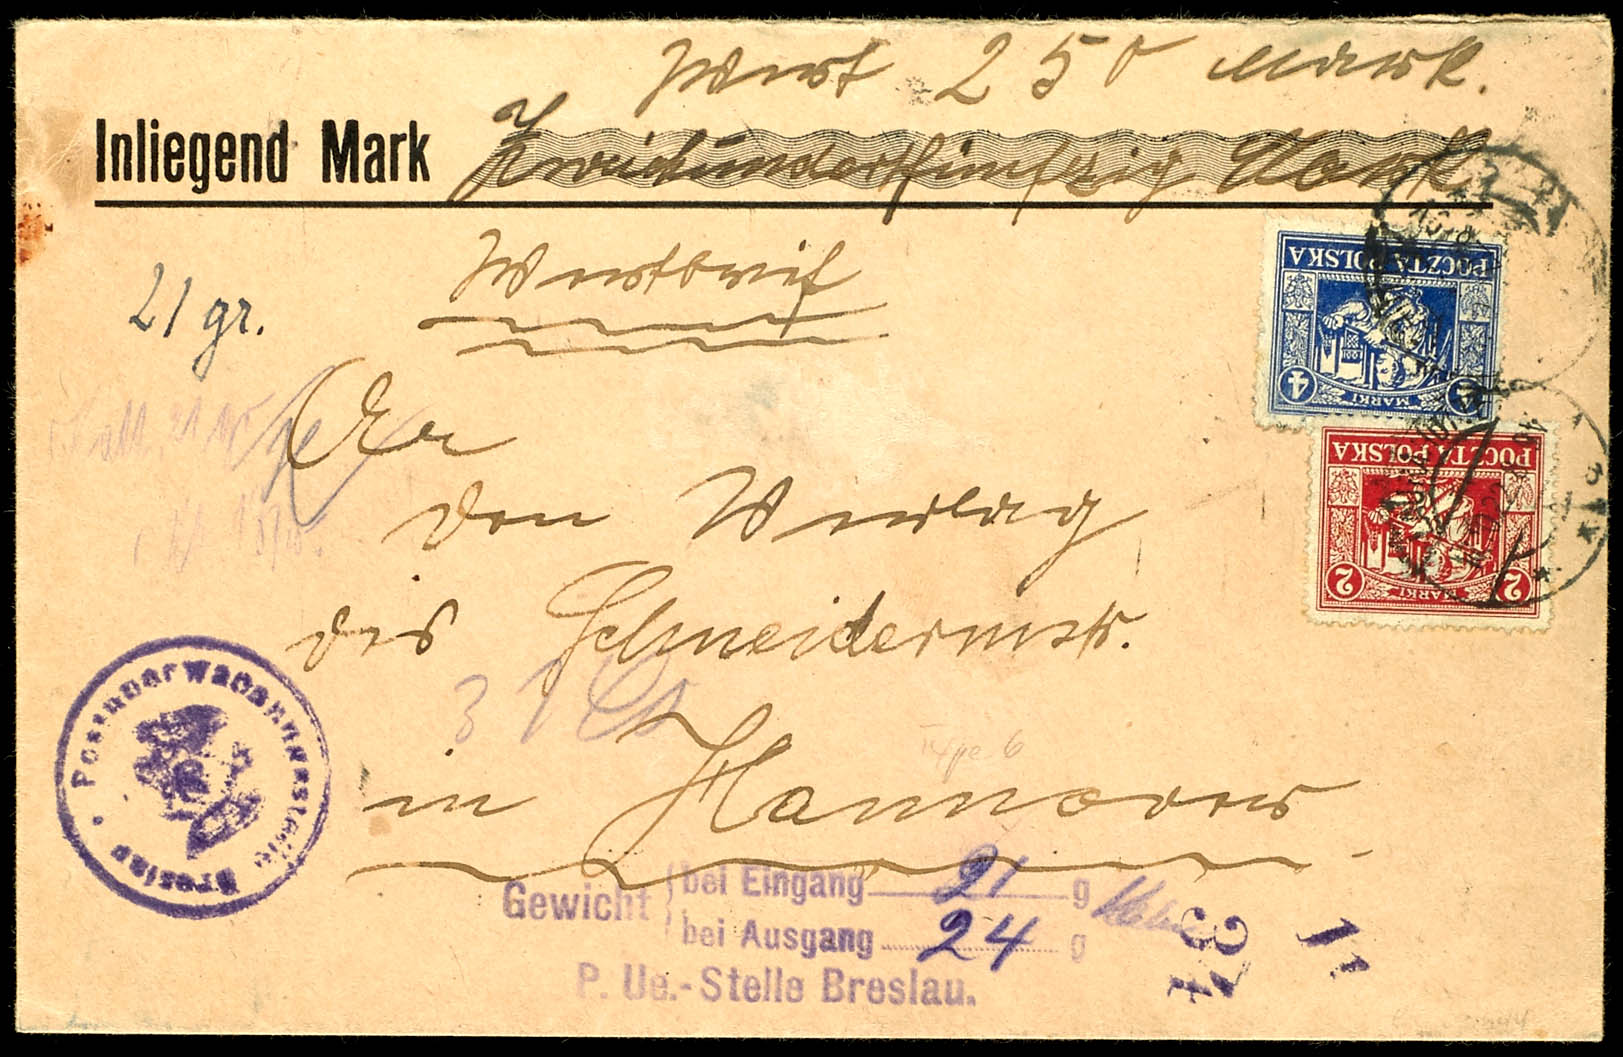 Wert 250 Mark.
Inliegend Mark Zweihundertfünfzig Mark
Wertbrief
21 gr.
An
den Verlag
des Schneidermstr.
in Hannover
POCZTA POLSKA
4 MARKI 4
POCZTA POLSKA
2 MARKI 2
Postüberwachungsstelle Breslau
Type 6
Gewicht bei Eingang 21 g
bei Ausgang 24 g
P. Ue.-Stelle Breslau.